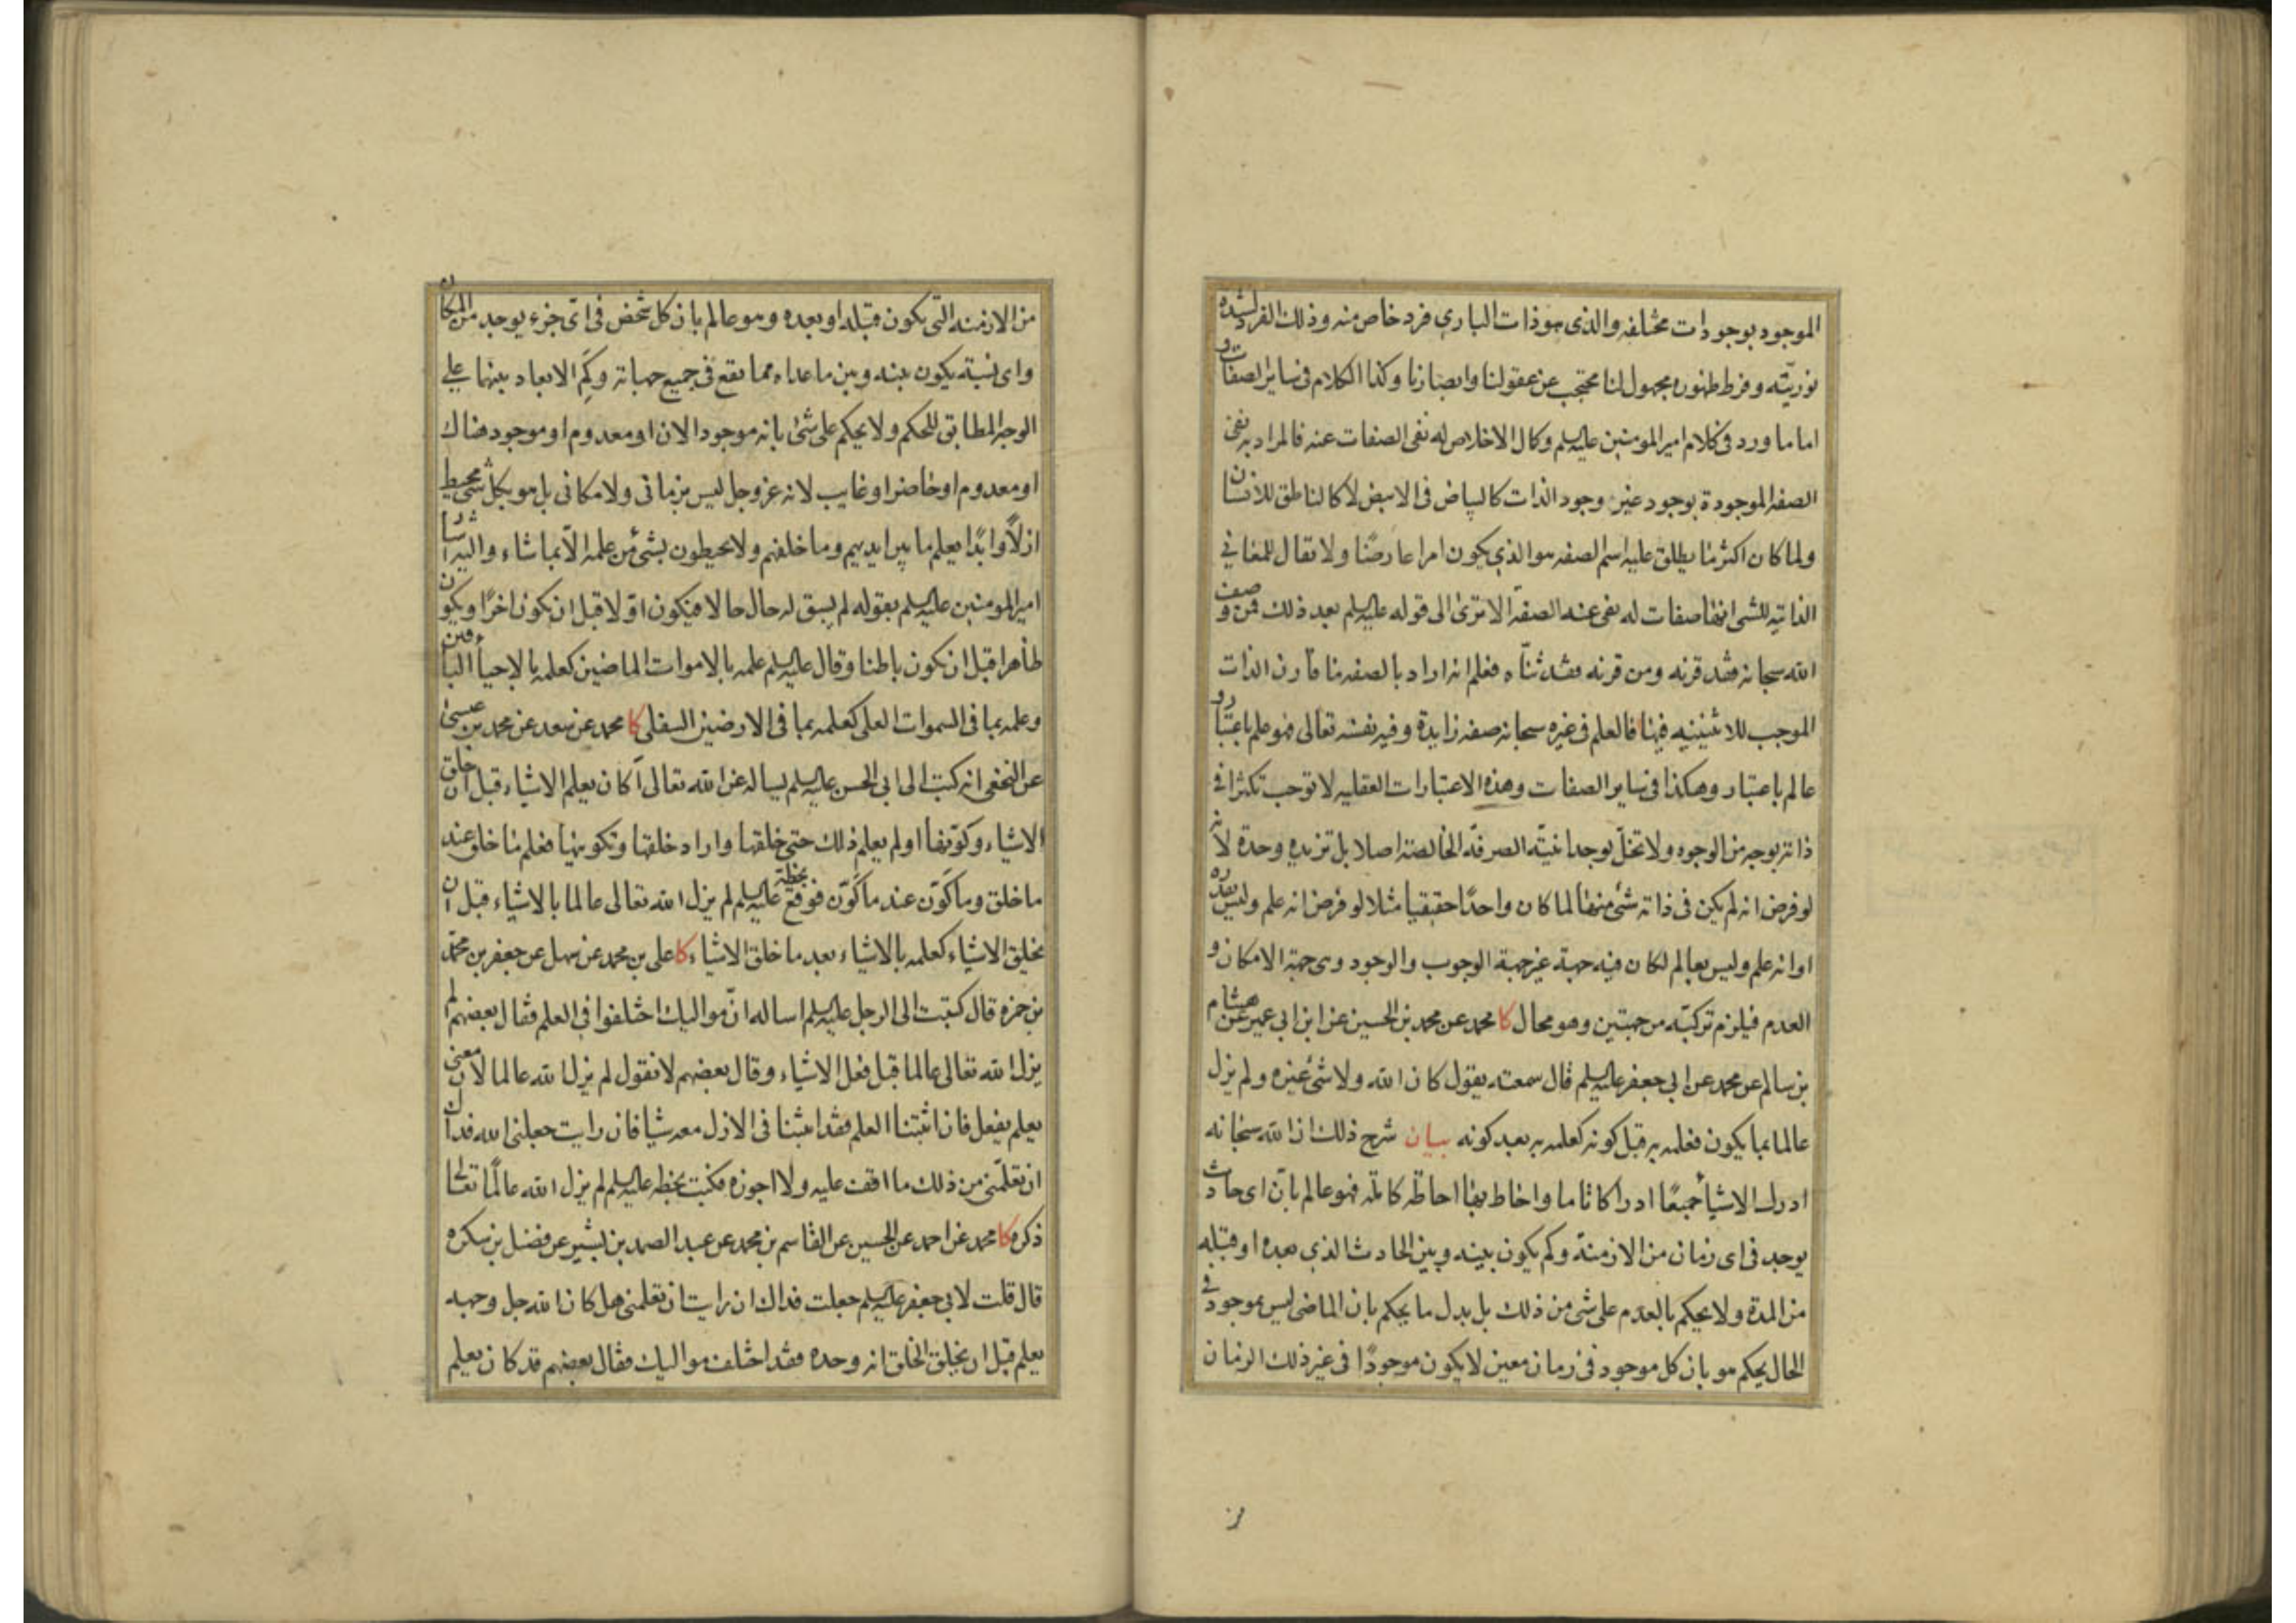 الموجود بوجودات مختلفه والذى هو ذات البارى فرد خاص منه وذلك الفرد لشده
نوريّته وفرط ظهوره مجهول لنا محتجب عن عقولنا وابصارنا وكذا الكلام فى ساير الصفات و
اما ما ورد فى كلام امير المومنين عليه السلم وكمال الاخلاص له نفى الصفات عنه فالمراد به نفى
الصفه الموجودة بوجود غير وجود الذات كالبياض فى الابيض لا كالناطق للانسان
ولما كان اكثر ما يطلق عليه اسم الصفه هو الذى يكون امرا عارضًا ولا تقال للمعانى
الذاتيه للشى انها صفات له نفى عنه الصفة الا ترى الى قوله عليه السلم بعد ذلك فمن وصف
الله سبحانه فقد قرنه ومن قرنه فقد ثنّاه فعلم انه اراد بالصفه ما قارن الذات
الموجب للاثنينيه فيها فالعلم فى غيره سبحانه صفه زايدة وفيه نفسه تعالى فهو علم باعتبار و
عالم باعتبار وهكذا فى ساير الصفات وهذه الاعتبارات العقليه لا توجب تكثرا فى
ذاته بوجه من الوجوه ولا تخلّ بوحدانيّته الصرفة الخالصة اصلا بل تزيده وحدة لانه
لو فرض انه لم يكن فى ذاته شئ منها لما كان واحدًا حقيقيا مثلا لو فرض انه علم وليس بقدره
او انه علم وليس بعالم لكان فيه جهة غير جهة الوجوب والوجود وهى جهة الامكان و
العدم فيلزم تركبّه من جهتين وهو محال كا محمد عن محمد بن الحسين عن ابن ابى عمير عن هشام
بن سالم عن محمد عن ابى جعفر عليه السلم قال سمعته يقول كان الله ولا شئ غيره ولم يزل
عالما بما يكون فعلمه به قبل كونه كعلمه به بعد كونه بيان شرح ذلك ان الله سبحانه
ادرك الاشيأ جميعًا ادراكا تاما واحاط بها احاطة كاملة فهو عالم بانّ اى حادث
يوجد فى اى زمان من الازمنة وكم يكون بينه وبين الحادث الذى بعده او قبله
من المدة ولا يحكم بالعدم على شى من ذلك بل بدل ما يحكم بان الماضى ليس موجود فى
الحال يحكم هو بان كل موجود فى زمان معين لا يكون موجودًا فى غير ذلك الزمان
من الازمنه التى تكون قبله او بعده وهو عالم بان كل شخص فى اىّ جزء يوجد من المكان
واى نسبة يكون بينه وبين ما عداه مما يقع فى جميع جهاته وكم الابعاد بينها على
الوجه المطابق للحكم ولا يحكم على شئ بانه موجود الان او معدوم او موجود هناك
او معدوم او حاضر او غايب لانه عز وجل ليس بزمانى ولا مكانى بل هو بكل شئ محيط
ازلًا وابدًا يعلم ما بين ايديهم وما خلفهم ولا يحيطون بشئ من علمه الّا بما شاء واليه اشار
امير المومنين عليه السلم بقوله لم يسبق له حال حالا فيكون اولا قبل ان يكون اخرًا ويكون
ظاهرا قبل ان يكون باطنا وقال عليه السلم علمه بالاموات الماضين كعلمه بالاحيأ الباقين
وعلمه بما فى السموات العلى كعلمه بما فى الارضين السفلى كا محمد عن سعد عن محمد بن عيسى
عن النخعى انه كتب الى ابى الحسن عليه السلم يساله عن الله تعالى أكان يعلم الاشياء قبل ان خلق
الاشياء وكوّنها او لم يعلم ذلك حتى خلقها واراد خلقها وتكوينها فعلم ما خلق عند
ما خلق وما كوّن عند ما كوّن فوقّع بخطه عليه السلم لم يزل الله تعالى عالما بالاشياء قبل ان
يخلق الاشياء كعلمه بالاشياء بعد ما خلق الاشياء كا على بن محمد عن سهل عن جعفر بن محمّد
بن حمزه قال كتبت الى الرجل عليه السلم اساله انّ مواليك اختلفوا فى العلم فقال بعضهم لم
يزل الله تعالى عالما قبل فعل الاشياء وقال بعضهم لا نقول لم يزل الله عالما لان معنى
يعلم يفعل فان اثبتنا العلم فقد اثبتنا فى الازل معه شيا فان رايت جعلنى الله فداك
ان تعلّمنى من ذلك ما اقف عليه ولا اجوزه فكتب بخطه عليه السلم لم يزل الله عالمًا تعالى
ذكره كا محمد عن احمد عن الحسين عن القاسم بن محمد عن عبد الصمد بن بشير عن فضل بن سكره
قال قلت لابى جعفر عليه السلم جعلت فداك ان رايت ان تعلمنى هل كان الله جل وجهه
يعلم قبل ان يخلق الخلق انه وحده فقد اختلف مواليك فقال بعضهم قد كان يعلم
من